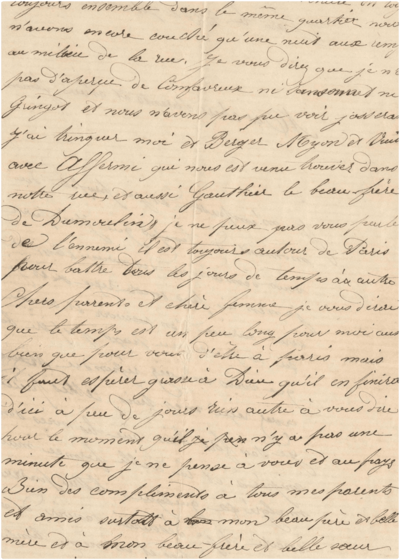 toujours ensemble dans le même quartier nous
n'avons encore couché qu'une nuit aux
au milieu de la rue. Je vous dirai que je n'ai
pas d'aperçu de ni Sansonnet ne
Gringot et nous n'avons pas pu voir
J'ai trinquer moi et Berger Myon et
avec Affermi qui nous est venu trouver dans
notre rue, et aussi Gauthier le beau frère
de Dumoulin, je ne peux pas vous parler
de l'ennemi il est toujours autour de Paris
pour battre tous les jours de temps à autre
Chers parents et chère femme je vous dirai
que le temps est un peu long pour moi aussi
bien que pour vous d'être à parris mais
il faut espérer grasse à Dieu qu'il en finira
d'ici à peu de jours rien autre à vous dire
pour le moment qu'il n'y a pas une
minute que je ne pense à vous et au pays
Bien des compliments à tous mes parents
et amis surtout à mon beau père et belle
mère et à mon beau frère et belle sœur